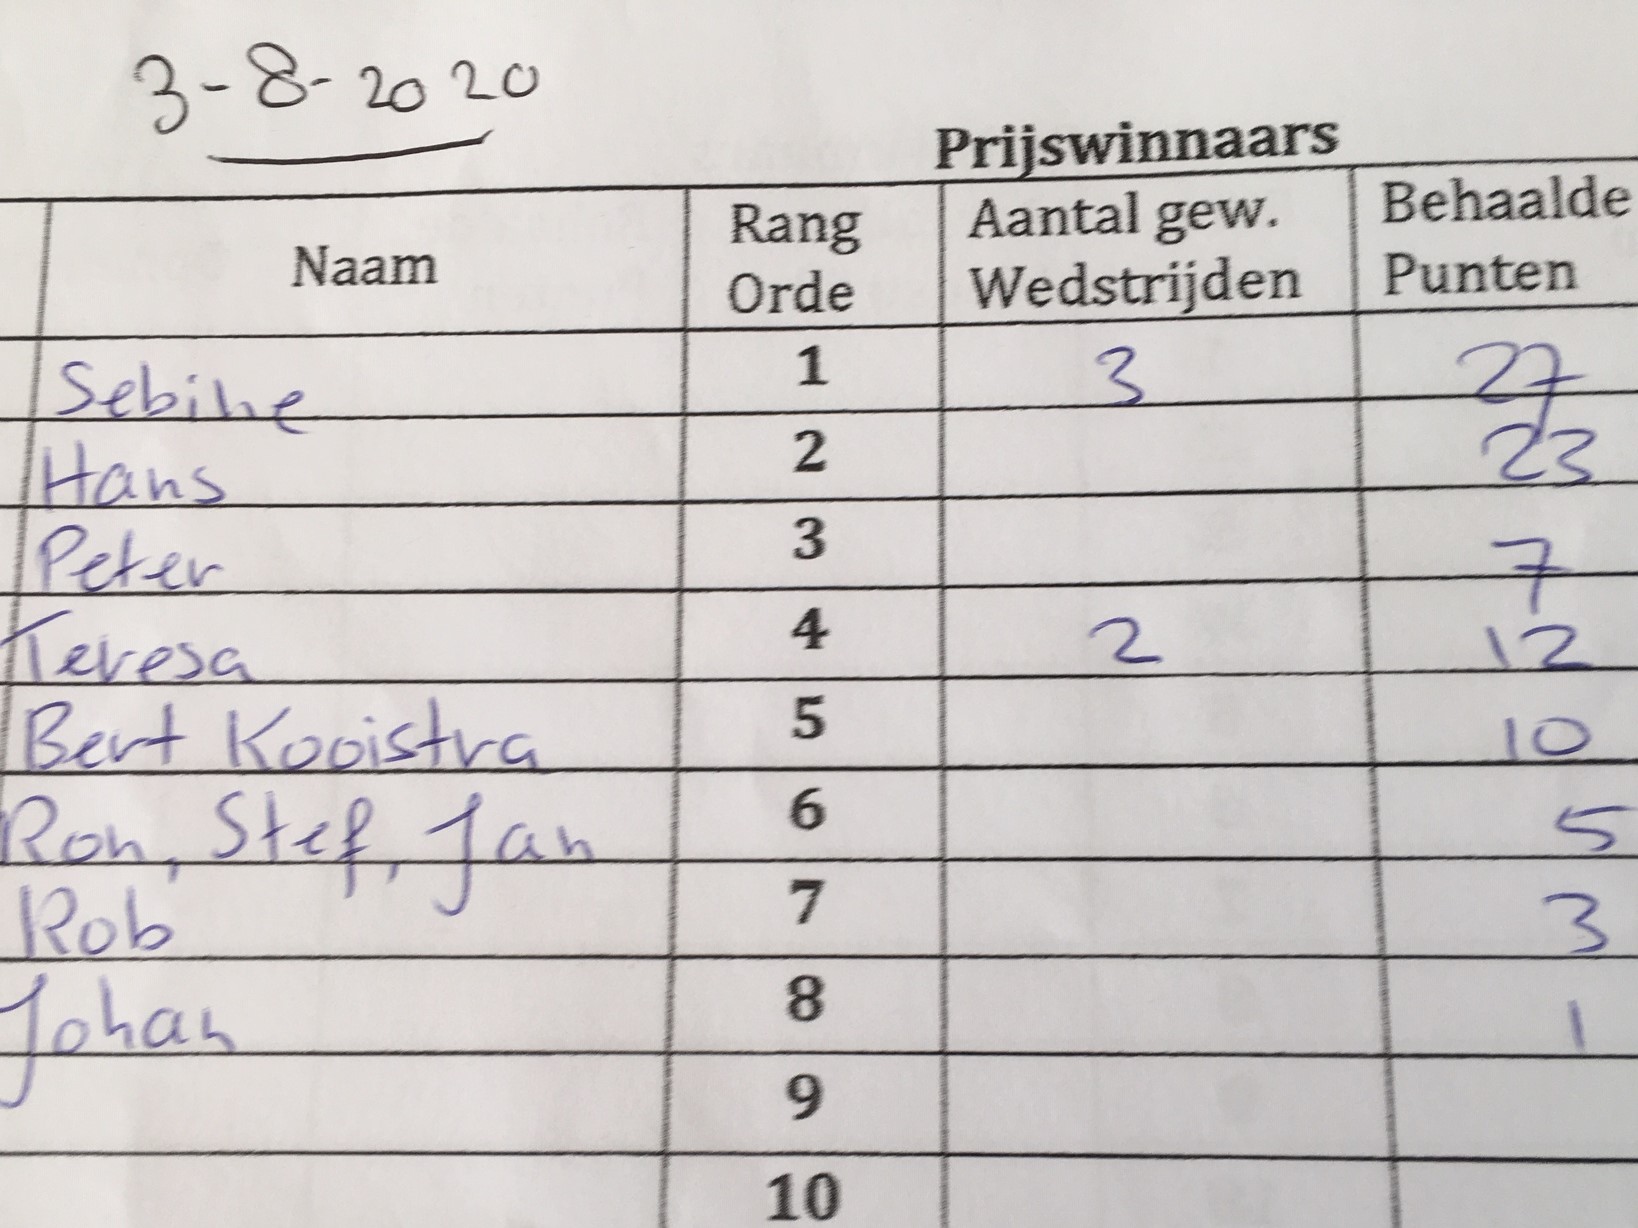 3-8-2020
Prijswinnaars
Naam Rang Orde Aantal gew. Wedstrijden Behaalde Punten
Sebine 1 3 27
Hans 2 23
Peter 3 7
Teresa 4 2 12
Bert Kooistra 5 10
Ron, Stef, Jan 6 5
Rob 7 3
Johan 8 1
9
10